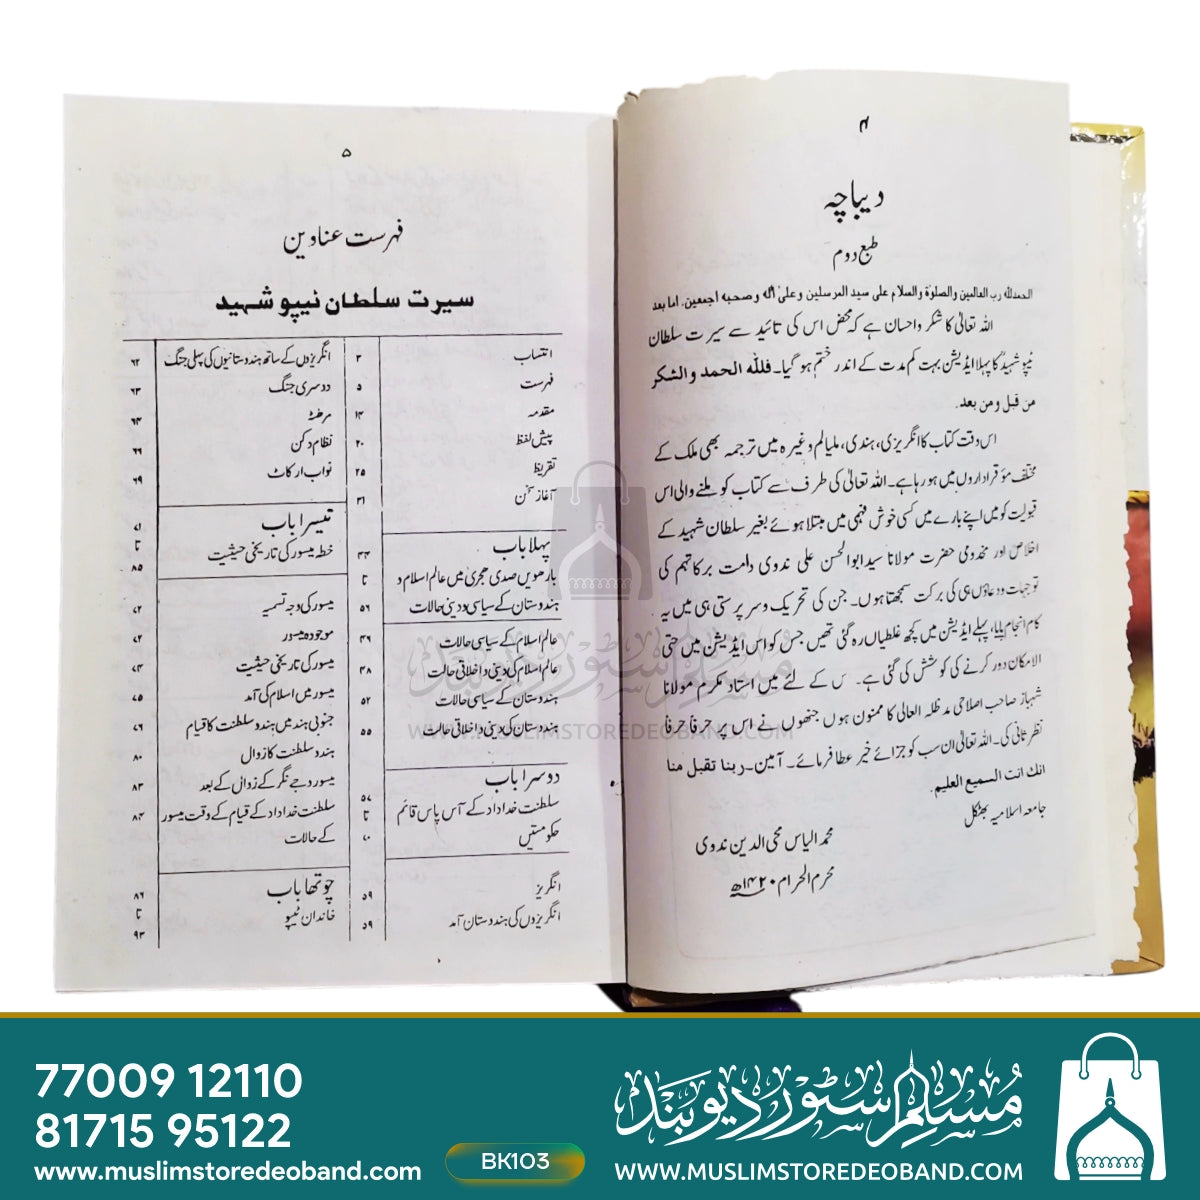 ۴
دیباچہ
طبع دوم
الحمدللہ رب العالمین والصلوٰۃ والسلام علی سید المرسلین وعلیٰ آلہ وصحبہ اجمعین. اما بعد
اللہ تعالیٰ کا شکر و احسان ہے کہ محض اس کی تائید سے سیرت سلطان
ٹیپو شہیدؒ کا پہلا ایڈیشن بہت کم مدت کے اندر ختم ہو گیا۔ فللّٰہ الحمد والشکر
من قبل ومن بعد.
اس وقت کتاب کا انگریزی، ہندی، ملیالم وغیرہ میں ترجمہ بھی ملک کے
مختلف مؤقر اداروں میں ہو رہا ہے۔ اللہ تعالیٰ کی طرف سے کتاب کو ملنے والی اس
قبولیت کو میں اپنے بارے میں کسی خوش فہمی میں مبتلا ہوئے بغیر سلطان شہید کے
اخلاص اور مخدومی حضرت مولانا سید ابوالحسن علی ندوی دامت برکاتہم کی
توجہات ودعاؤں ہی کی برکت سمجھتا ہوں۔ جن کی تحریک وسرپرستی ہی میں یہ
کام انجام پایا، پہلے ایڈیشن میں کچھ غلطیاں رہ گئی تھیں جس کو اس ایڈیشن میں حتی
الامکان دور کرنے کی کوشش کی گئی ہے۔ س کے لئے میں استاد مکرم مولانا
شہباز صاحب اصلاحی مدظلہ العالی کا ممنون ہوں جنھوں نے اس پر حرفاً حرفاً
نظر ثانی کی۔ اللہ تعالیٰ ان سب کو جزائے خیر عطا فرمائے۔ آمین۔ ربنا تقبل منا
انک انت السمیع العلیم.
جامعہ اسلامیہ بھٹکل
محمد الیاس محی الدین ندوی
محرم الحرام ۱۴۲۰ھ
۵
فہرست عناوین
سیرت سلطان ٹیپو شہید
انتساب ۳
فہرست ۵
مقدمہ ۱۴
پیش لفظ ۲۰
تقریظ ۲۵
آغاز سخن ۳۱
پہلا باب ۴۴
بارھویں صدی ہجری میں عالم اسلام و تا
ہندوستان کے سیاسی و دینی حالات ۵۶
عالم اسلام کے سیاسی حالات ۴۶
عالم اسلام کی دینی و اخلاقی حالت ۴۸
ہندوستان کے سیاسی حالات ۵۲
ہندوستان کی دینی و اخلاقی حالت ۵۵
دوسرا باب ۵۷
سلطنت خداداد کے آس پاس قائم تا
حکومتیں ۷۰
انگریز ۵۹
انگریزوں کی ہندوستان آمد ۵۹
انگریزوں کے ساتھ ہندوستانیوں کی پہلی جنگ ۶۲
دوسری جنگ ۶۳
مرہٹے ۶۴
نظام دکن ۶۶
نواب ارکاٹ ۶۹
تیسرا باب ۷۱
تا
خطہ میسور کی تاریخی حیثیت ۸۵
میسور کی وجہ تسمیہ ۷۲
موجودہ میسور ۷۲
میسور کی تاریخی حیثیت ۷۳
میسور میں اسلام کی آمد ۷۵
جنوبی ہند میں ہندو سلطنت کا قیام ۷۶
ہندو سلطنت کا زوال ۸۰
میسور وجے نگر کے زوال کے بعد ۸۳
سلطنت خداداد کے قیام کے وقت میسور ۸۴
کے حالات
چوتھا باب ۸۶
خاندان ٹیپو تا
۹۳
مسلم سٹور دیوبند
WWW.MUSLIMSTOREDEOBAND.COM
77009 12110
81715 95122
www.muslimstoredeoband.com
BK103
مسلم سٹور دیوبند
WWW.MUSLIMSTOREDEOBAND.COM